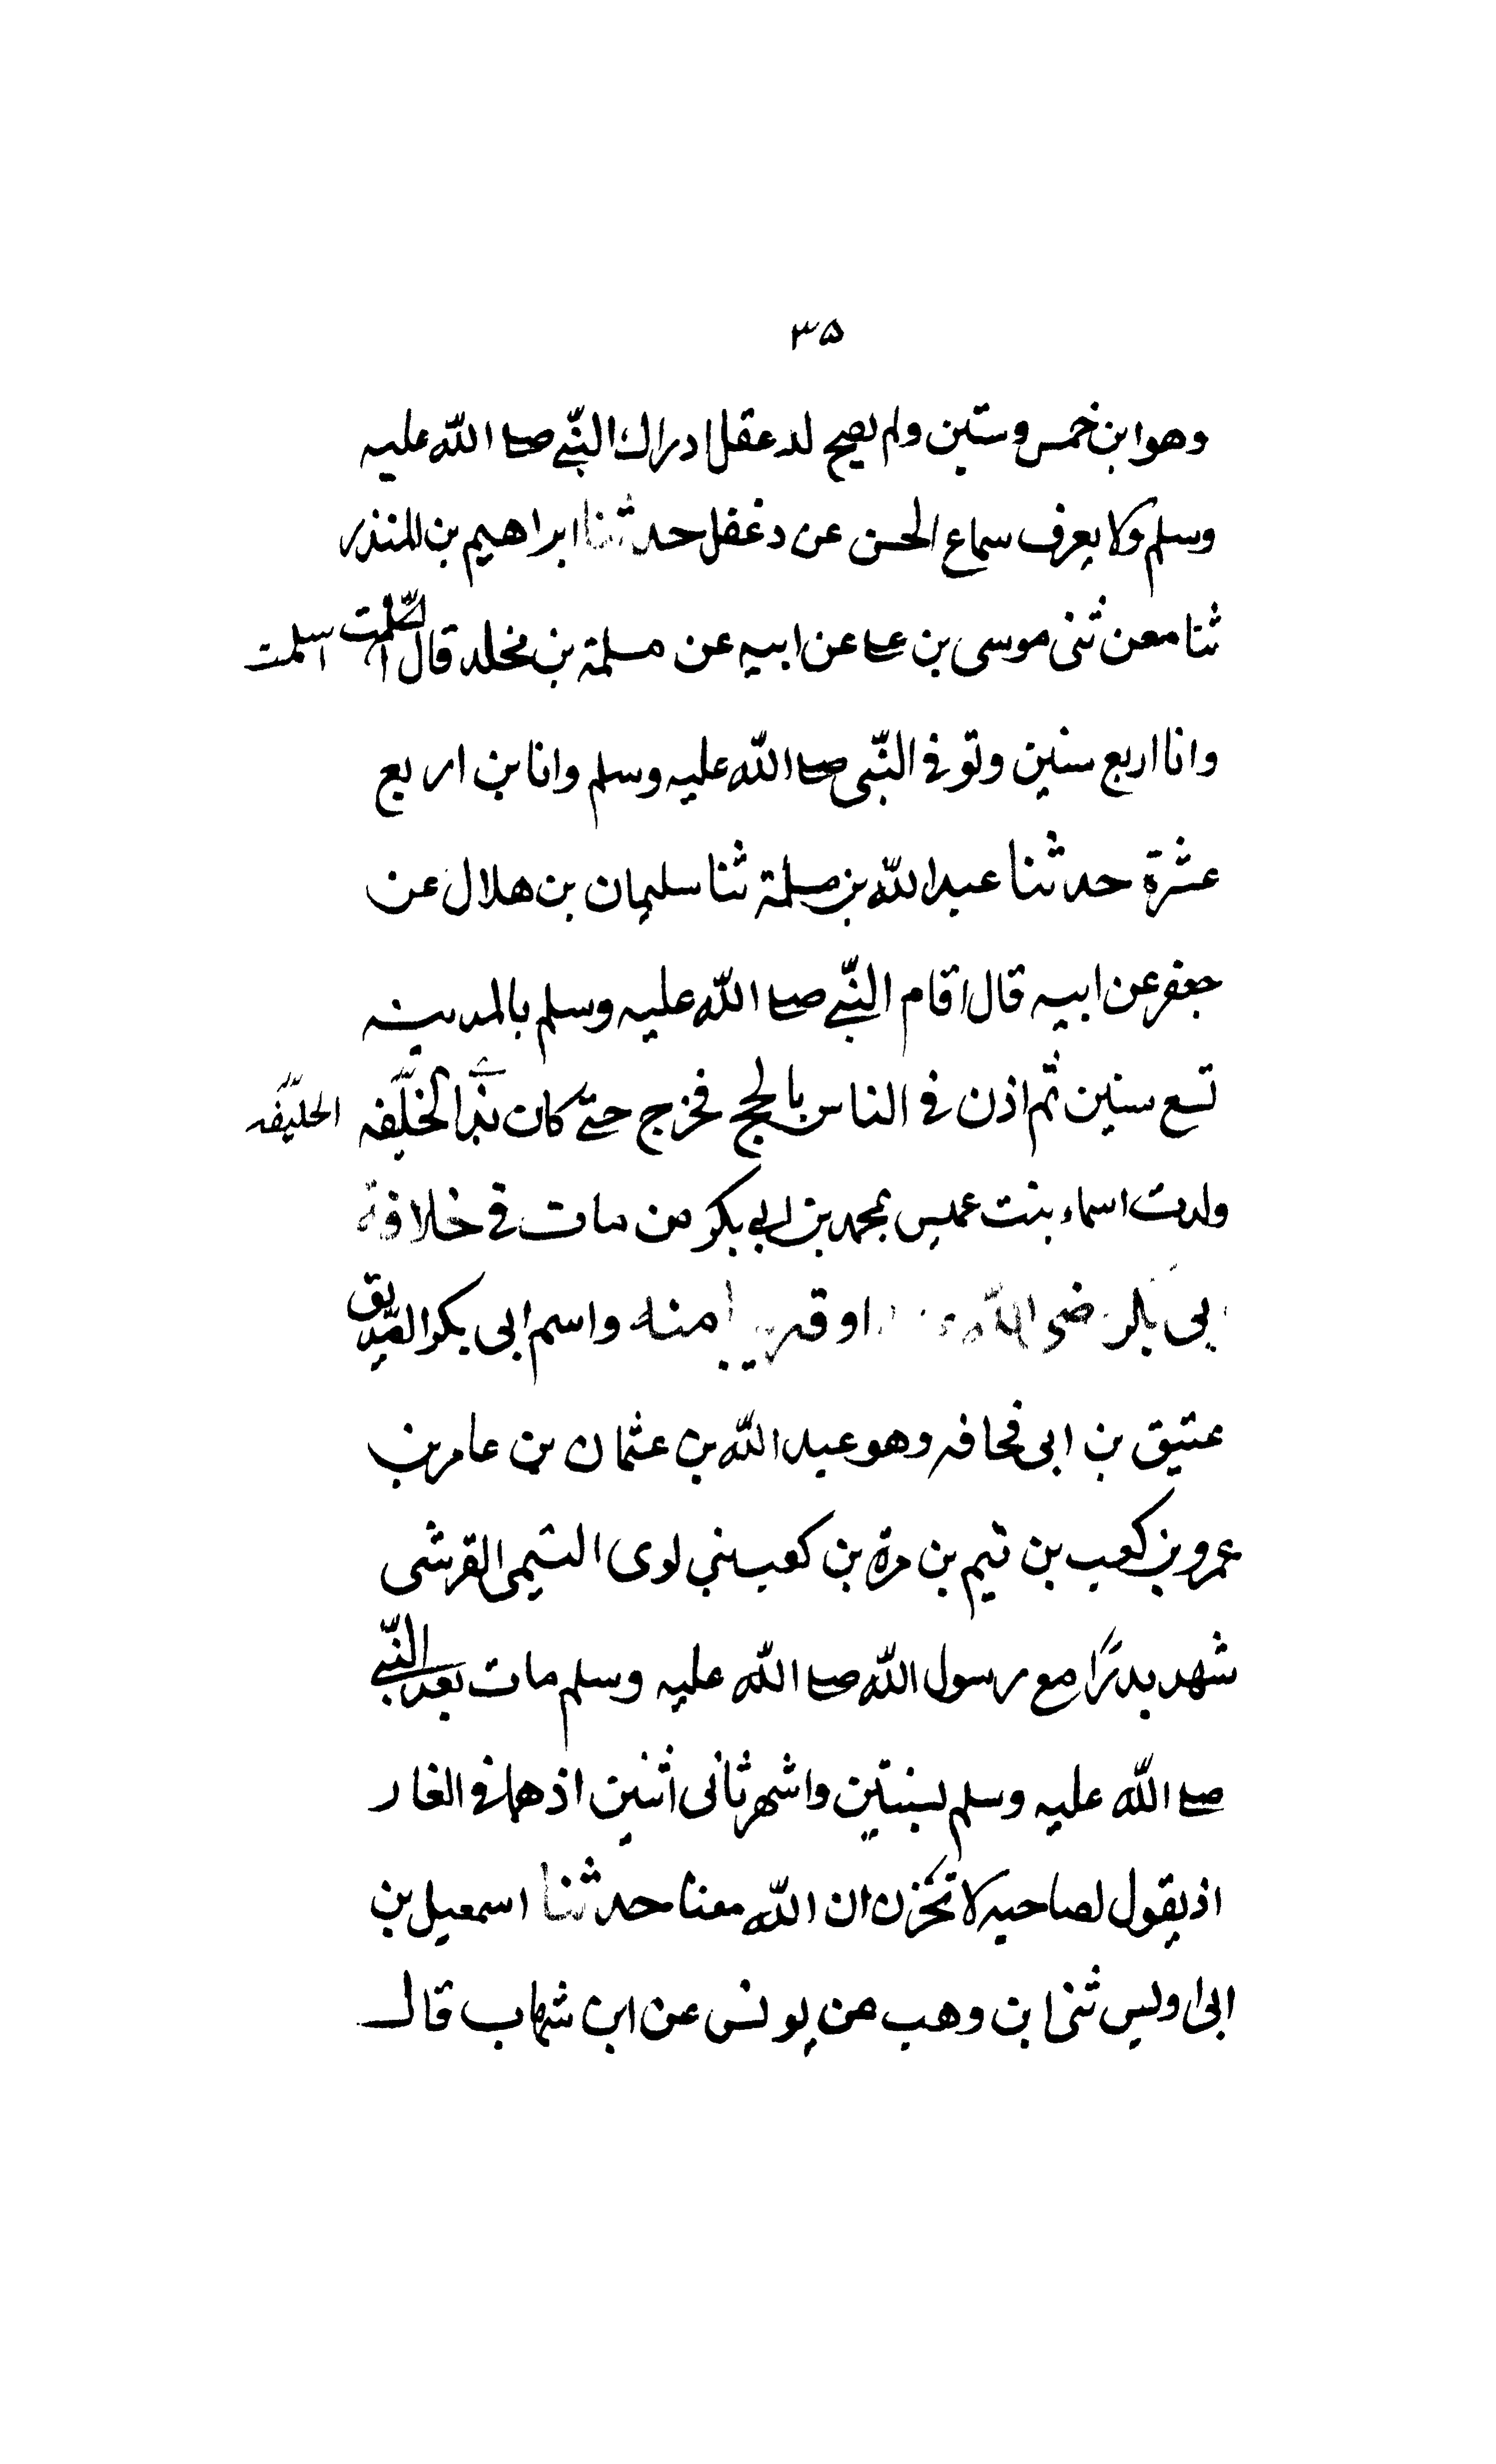 ۳۵
وهو ابن خمس وستين ولم يصح لدغفل ادراك النبي صلى الله عليه
وسلم ولا يعرف سماع الحسن عن دغفل حدثنا ابراهيم بن المنذر
ثنا معن ثنى موسى بن على عن ابيه عن مسلمة بن مخلد قال اسلمت
وانا اربع سنين وتوفى النبى صلى الله عليه وسلم وانا بن اربع
عشرة حدثنا عبد الله بن مسلمة ثنا سليمان بن هلال عن
جعفر عن ابيه قال اقام النبي صلى الله عليه وسلم بالمدينه
تسع سنين ثم اذن فى الناس بالحج فخرج حتى كان بذى الحليفه الحليفه
ولدت اسماء بنت عميس بمحمد بن ابى بكر من مات فى خلافة
ابى بكر رضى الله او قريب منه واسم ابى بكر الصديق
عتيق بن ابى قحافه وهو عبد الله بن عثمان بن عامر بن
عمرو بن كعب بن تيم بن مرة بن كعب بن لوى التيمى القرشى
شهد بدرًا مع رسول الله صلى الله عليه وسلم مات بعد النبي
صلى الله عليه وسلم بسنتين واشهر ثانى اثنين اذ هما فى الغار
اذ يقول لصاحبه لا تحزن ان الله معنا حدثنا اسمعيل بن
ابى اويس ثنى ابن وهب عن يونس عن ابن شهاب قال